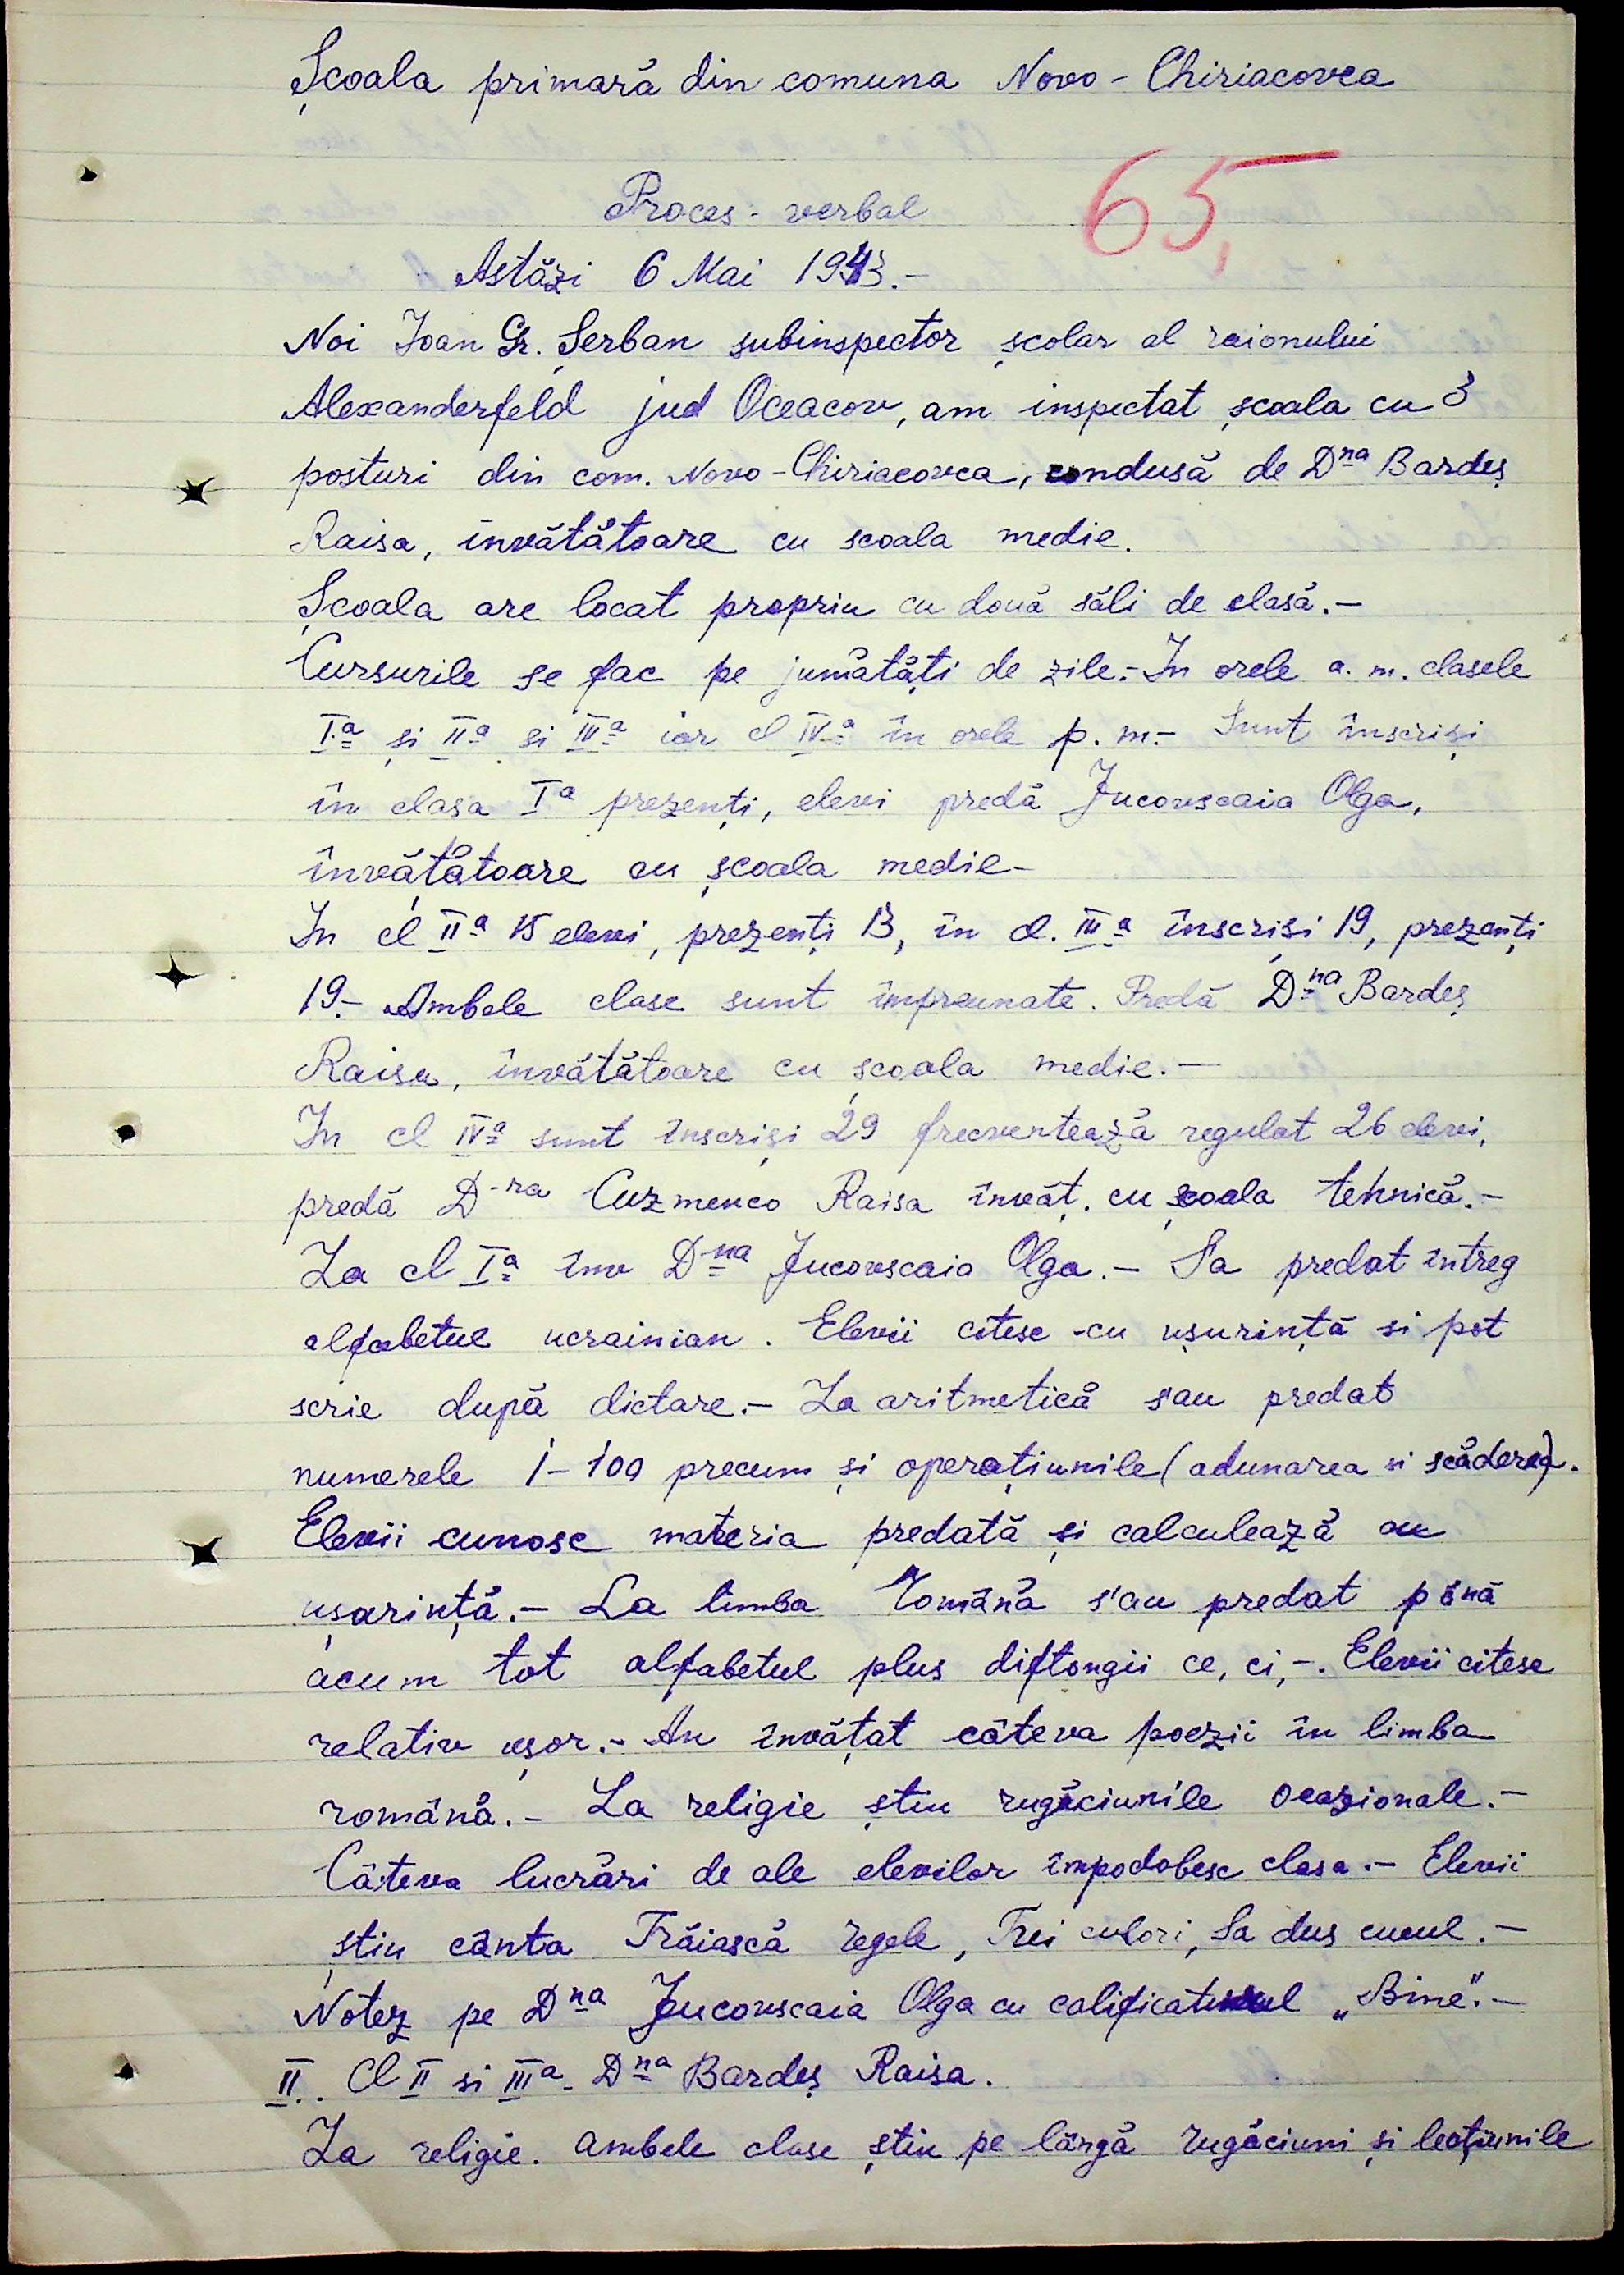 Școala primară din comuna Novo-Chiriacovca
65,
Proces-verbal
Astăzi 6 Mai 1943.-
Noi Ioan Gr. Șerban subinspector școlar al raionului
Alexanderfeld jud Oceacov, am inspectat școala cu 3
posturi din com. Novo-Chiriacovca, condusă de Dna Bardeș
Raisa, învătătoare cu scoala medie.
Școala are locat propriu cu două săli de clasă.-
Cursurile se fac pe jumătăți de zile.- In orele a. m. clasele
I.a și II a si III a iar cl IV a în orele p. m.- Sunt înscriși
în clasa I a prezenți, elevi predă Jucovscaia Olga,
învățătoare cu școala medie-
In cl II a 15 elevi, prezenți 13, în cl. III a înscriși 19, prezenți
19.- Ambele clase sunt împreunate. Predă Dna Bardeș
Raisa, învătătoare cu școala medie.-
In cl IV a sunt înscriși 29 frecventează regulat 26 elevi,
predă D-ra Cuzmenco Raisa învăț. cu școala tehnică.-
La cl I a înv Dna Jucovscaia Olga.- Sa predat întreg
alfabetul ucrainian. Elevii citesc cu ușurință si pot
scrie după dictare.- La aritmetică sau predat
numerele 1-100 precum și operațiunile (adunarea si scăderea).
Elevii cunosc materia predată și calculează cu
ușurință.- La limba Română s'au predat până
acum tot alfabetul plus diftongii ce, ci,-. Elevii citesc
relativ ușor.- Au învățat câteva poezii în limba
română.- La religie știu rugăciunile ocazionale.-
Câteva lucrări de ale elevilor împodobesc clasa.- Elevii
știu cânta Trăiască regele, Trei culori, Sa dus cucul.-
Notez pe Dna Jucovscaia Olga cu calificativul „Bine".-
II. Cl II si III a - Dna Bardeș Raisa.
La religie. ambele clase știu pe lângă rugăciuni și lecțiunile